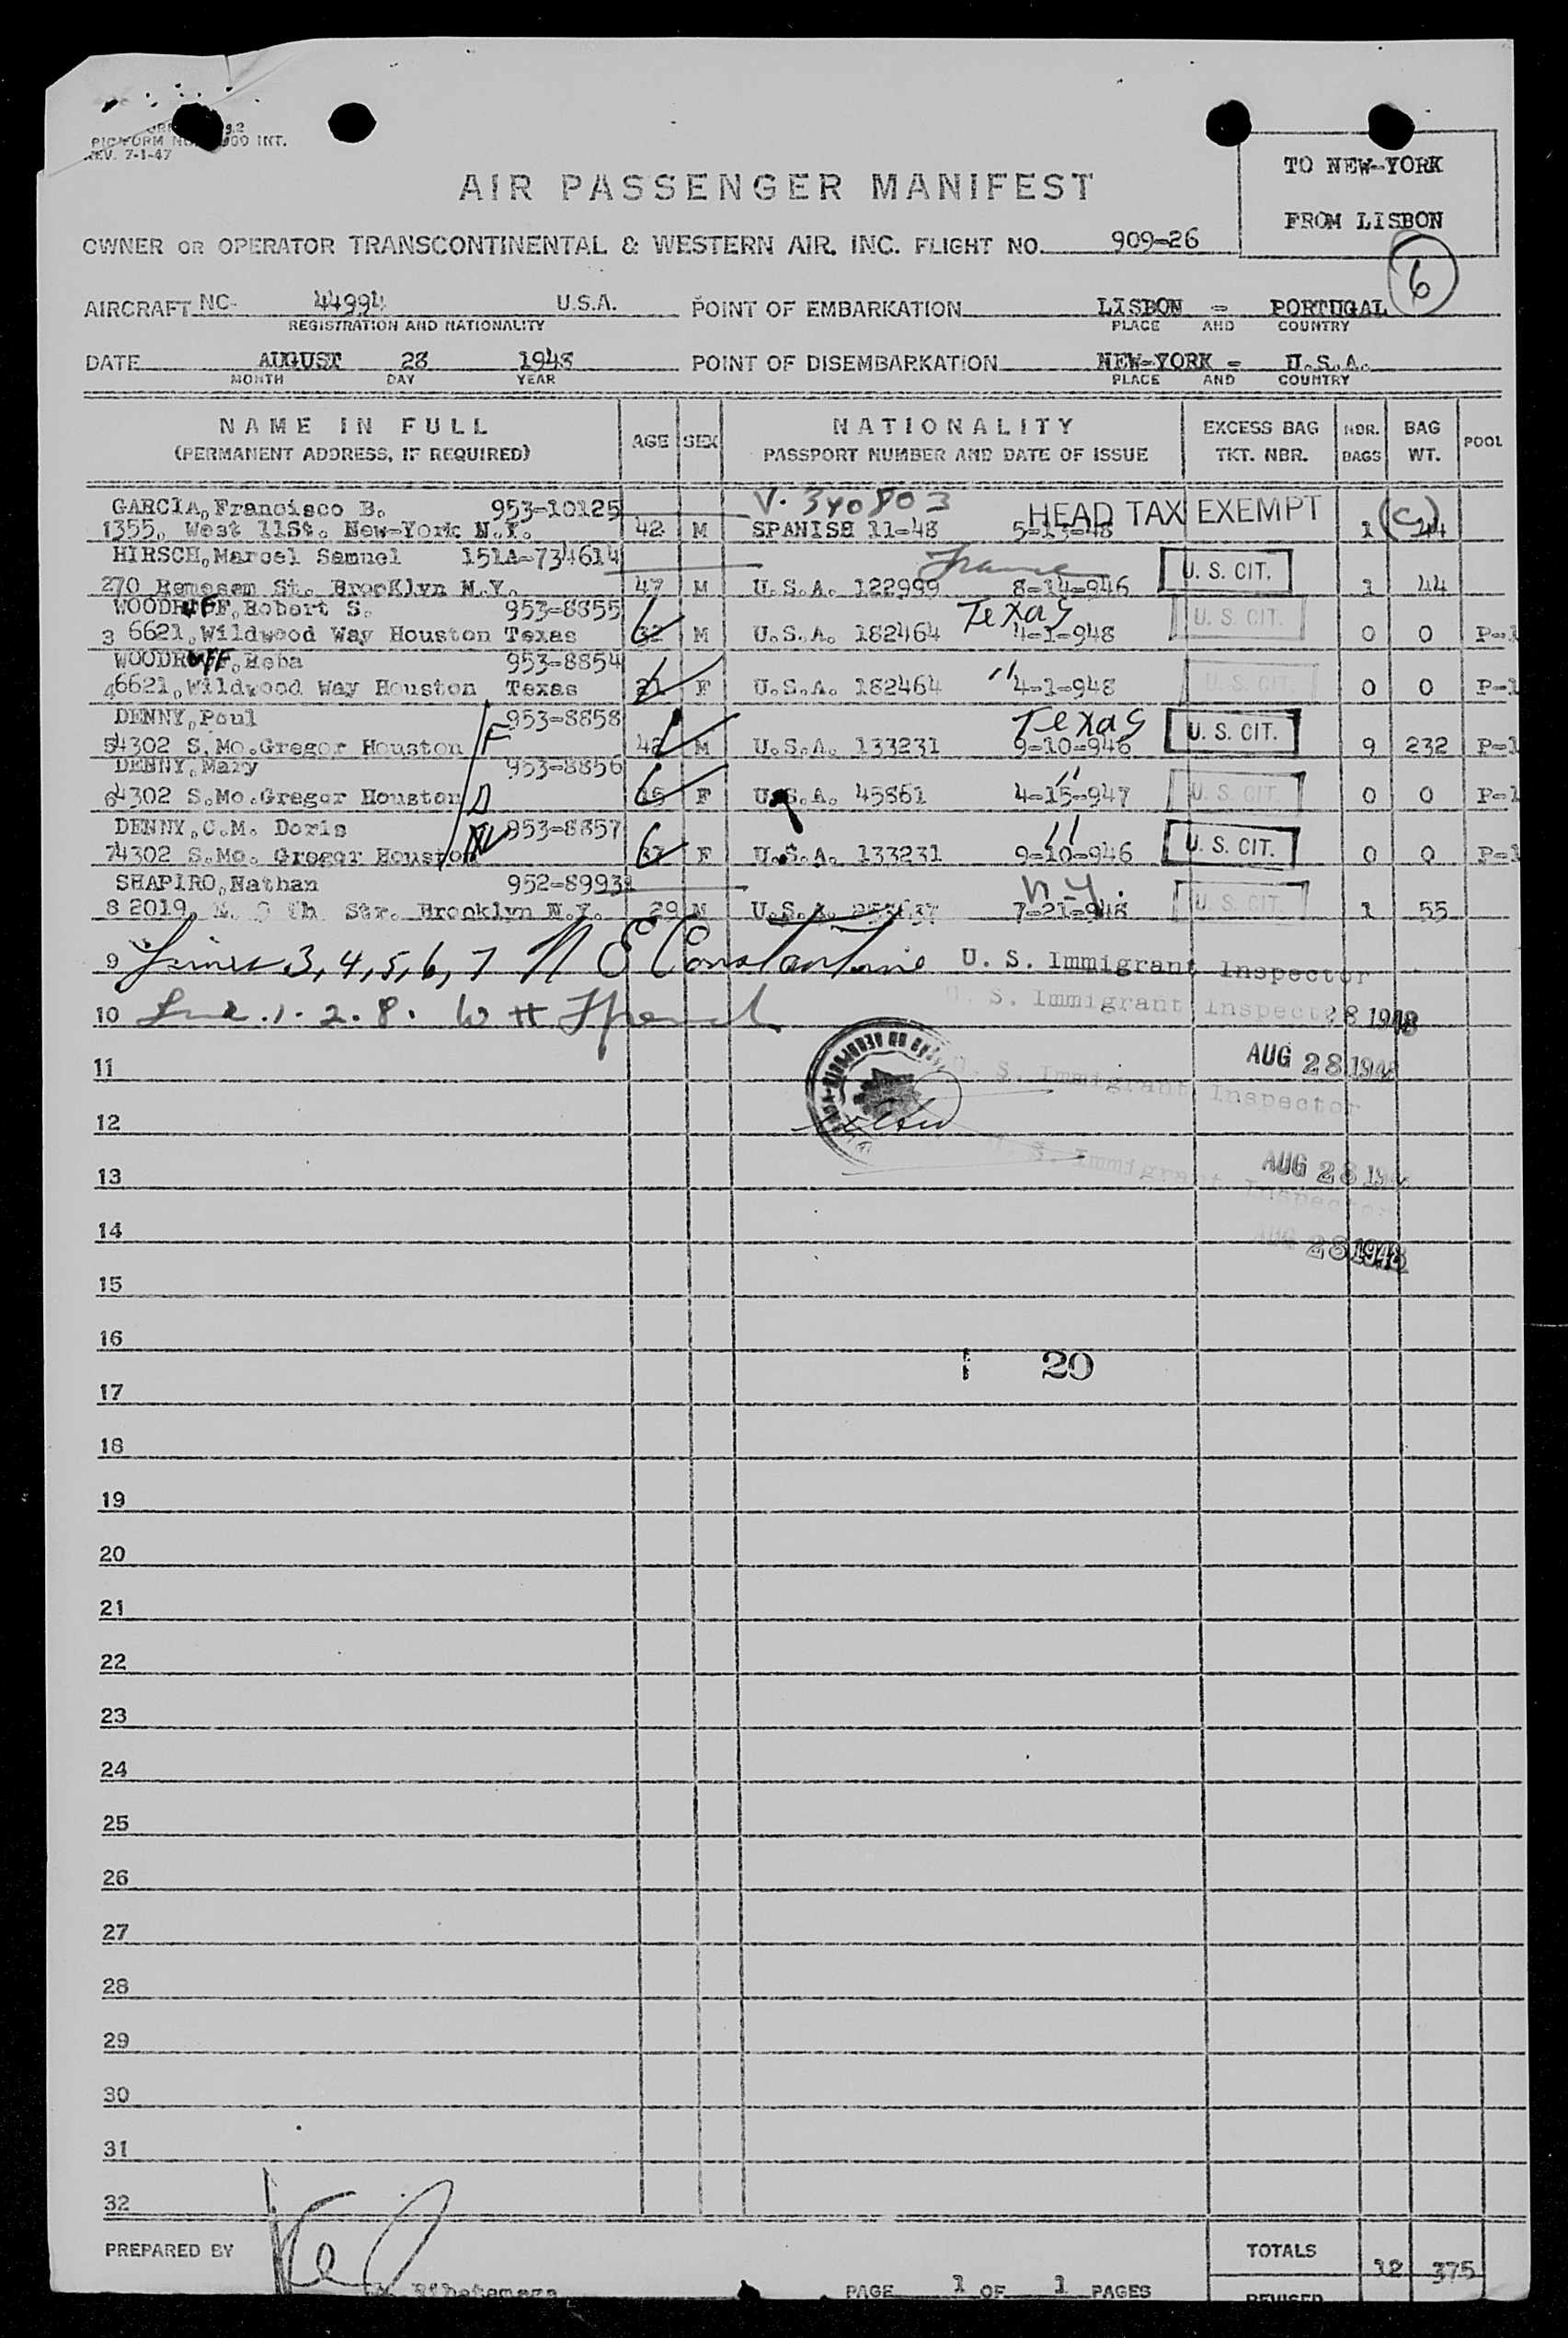 REV. 7-1-47
TO NEW-YORK
FROM LISBON
6
AIR PASSENGER MANIFEST
OWNER OR OPERATOR TRANSCONTINENTAL & WESTERN AIR, INC. FLIGHT NO. 909-26
AIRCRAFT NC- 44994 U.S.A. POINT OF EMBARKATION LISBON - PORTUGAL
REGISTRATION AND NATIONALITY PLACE AND COUNTRY
DATE AUGUST 28 1948 POINT OF DISEMBARKATION NEW-YORK - U.S.A.
MONTH DAY YEAR PLACE AND COUNTRY
NAME IN FULL AGE SEX NATIONALITY EXCESS BAG NBR. BAG POOL
(PERMANENT ADDRESS, IF REQUIRED) PASSPORT NUMBER AND DATE OF ISSUE TKT. NBR. BAGS WT.
GARCIA, Francisco B. 953-10125 V. 340803 HEAD TAX EXEMPT (C)
1355, West 11St. New-York N.Y. 42 M SPANISH 11-48 5-13-48 1 44
HIRSCH, Marcel Samuel 151A-734614 France U. S. CIT.
270 Remesem St. Brooklyn N.Y. 47 M U.S.A. 122999 8-14-946 1 44
WOODRUFF, Robert S. 953-8855 Texas U. S. CIT.
3 6621, Wildwood Way Houston Texas M U.S.A. 182464 4-1-948 0 0 P-1
WOODRUFF, Reba 953-8854 " U. S. CIT.
4 6621, Wildwood Way Houston Texas 21 F U.S.A. 182464 4-1-948 0 0 P-1
DENNY, Poul 953-8858 Texas U. S. CIT.
5 4302 S.Mo.Gregor Houston M U.S.A. 133231 9-10-946 9 232 P-1
DENNY, Mary 953-8856 " U. S. CIT.
6 4302 S.Mo.Gregor Houston F U.S.A. 45861 4-15-947 0 0 P-1
DENNY, C.M. Doris 953-8857 " U. S. CIT.
7 4302 S.Mo. Gregor Houston 37 F U.S.A. 133231 9-10-946 0 0 P-1
SHAPIRO, Nathan 952-8993 N.Y. U. S. CIT.
8 2019, Th Str. Brooklyn N.Y. 29 M U.S.A. 7-21-948 1 55
9 Lines 3, 4, 5, 6, 7 N E Constantine U. S. Immigrant Inspector
10 Line 1. 2. 8. W H French U. S. Immigrant Inspector 28 1948
11 AUG 28 1948
U. S. Immigrant Inspector
12
U. S. Immigrant Inspector
13 AUG 28 194
14 AUG 28 1948
15
16
20
17
18
19
20
21
22
23
24
25
26
27
28
29
30
31
32
PREPARED BY TOTALS 12 375
PAGE 1 OF 1 PAGES REVISED